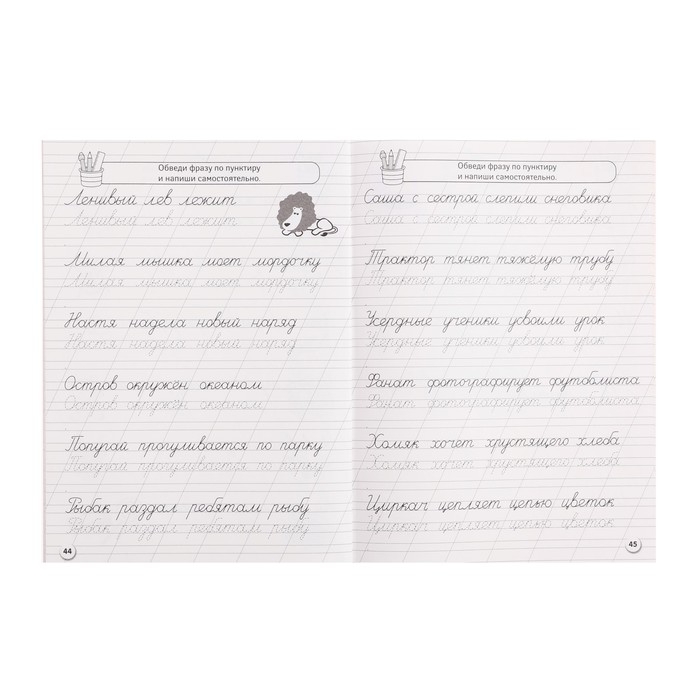 Обведи фразу по пунктиру
и напиши самостоятельно.
Ленивый лев лежит
Ленивый лев лежит
Милая мышка моет мордочку
Милая мышка моет мордочку
Настя надела новый наряд
Настя надела новый наряд
Остров окружён океаном
Остров окружён океаном
Попугай прогуливается по парку
Попугай прогуливается по парку
Рыбак раздал ребятам рыбу
Рыбак раздал ребятам рыбу
44
Обведи фразу по пунктиру
и напиши самостоятельно.
Саша с сестрой слепили снеговика
Саша с сестрой слепили снеговика
Трактор тянет тяжёлую трубу
Трактор тянет тяжёлую трубу
Усердные ученики усвоили урок
Усердные ученики усвоили урок
Фанат фотографирует футболиста
Фанат фотографирует футболиста
Хомяк хочет хрустящего хлеба
Хомяк хочет хрустящего хлеба
Циркач цепляет цепью цветок
Циркач цепляет цепью цветок
45